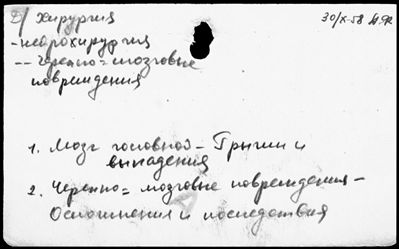 2) Хирургия 30/X-58
-нейрохирургия
-- Черепно=мозговые
повреждения
1. Мозг головной - Грыжи и
выпадения
2. Черепно=мозговые повреждения -
Осложнения и последствия